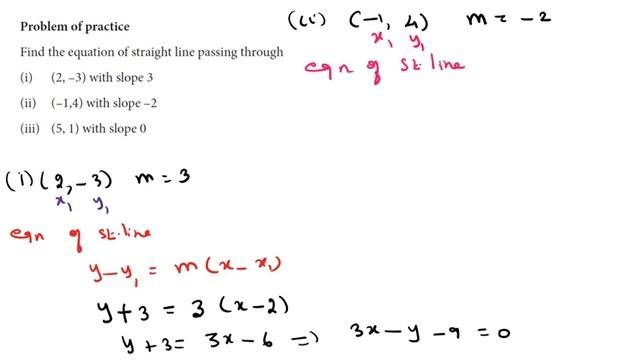 Problem of practice
Find the equation of straight line passing through
(i) (2, –3) with slope 3
(ii) (–1,4) with slope –2
(iii) (5, 1) with slope 0
(i) (2, -3) m = 3
x₁ y₁
eqn of st.line
y-y₁ = m(x-x₁)
y+3 = 3 (x-2)
y+3 = 3x-6 => 3x-y-9=0
(ii) (-1, 4) m = -2
x₁ y₁
eqn of st.line